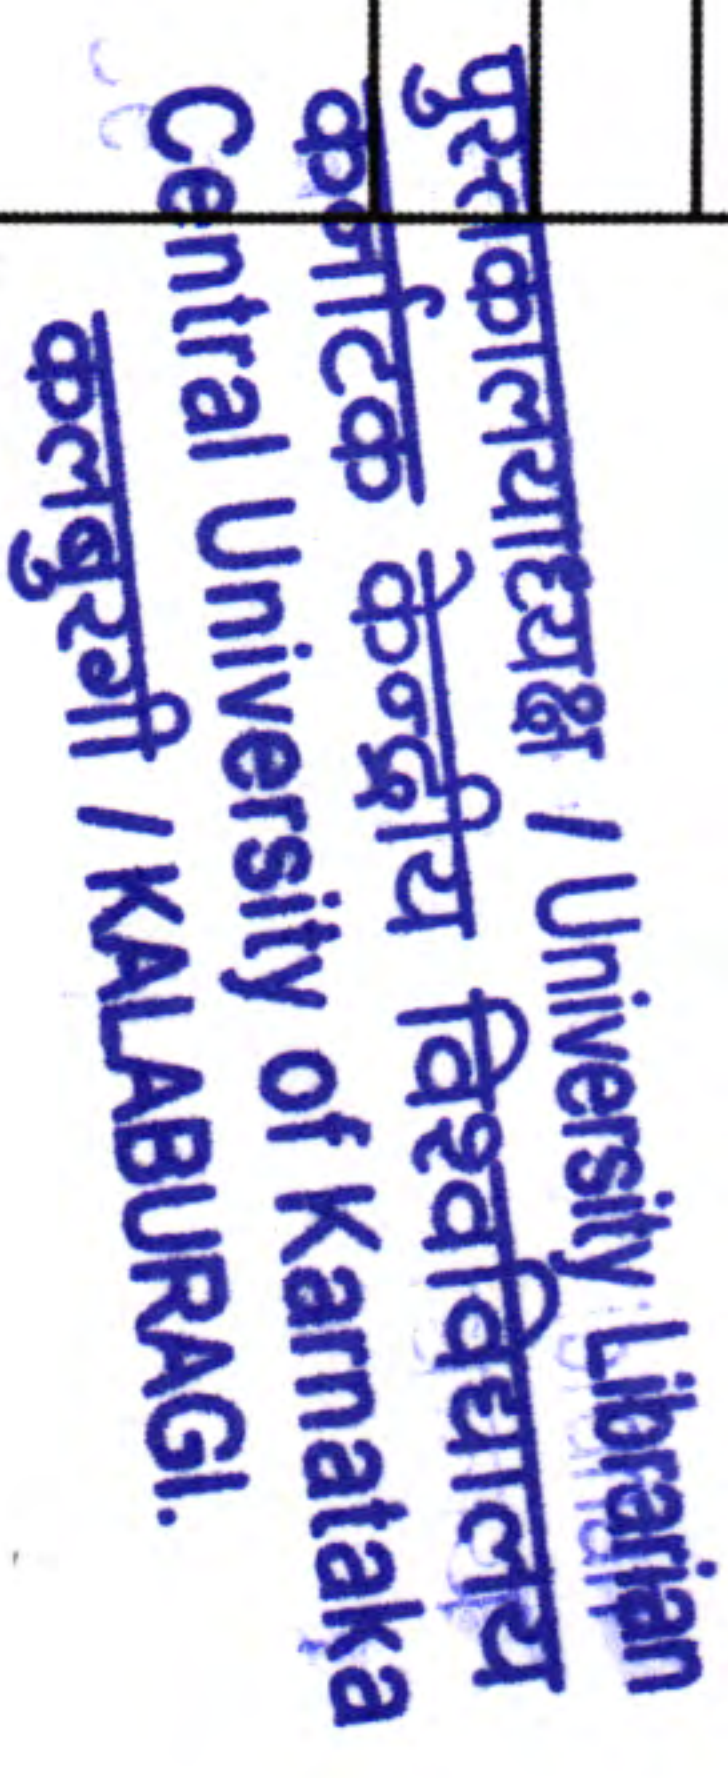 पुस्तकालयाध्यक्ष / University Librarian
कर्नाटक केन्द्रीय विश्वविद्यालय
Central University of Karnataka
कलबुरगी / KALABURAGI.